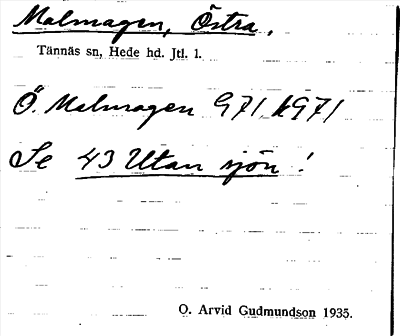 Malmagen, Östra.
Tännäs sn, Hede hd. Jtl. l.
Ö. Malmagen 971 k971
Se 43 Utan sjön!
O. Arvid Gudmundson 1935.